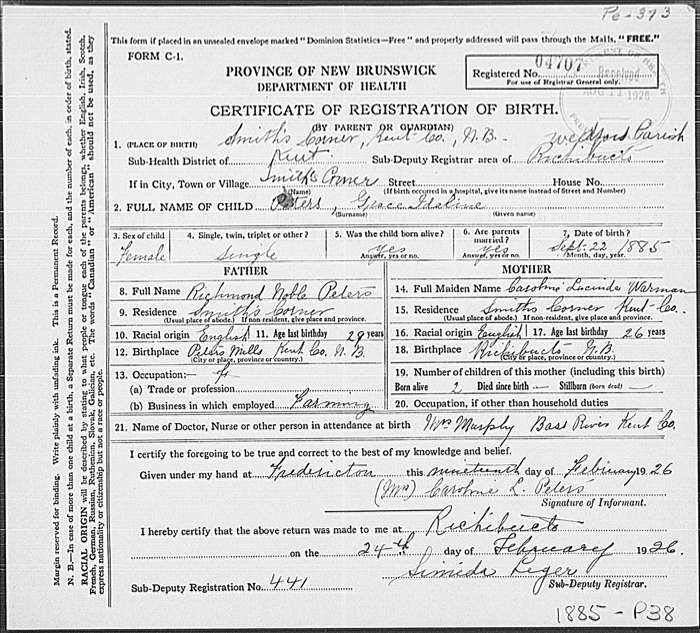 Pe-373
This form if placed in an unsealed envelope marked "Dominion Statistics—Free" and properly addressed will pass through the Mails, "FREE."
FORM C-1.
PROVINCE OF NEW BRUNSWICK
DEPARTMENT OF HEALTH
Registered No. 04707
For use of Registrar General only.
Received
1926
CERTIFICATE OF REGISTRATION OF BIRTH.
(BY PARENT OR GUARDIAN)
1. (PLACE OF BIRTH) Smith's Corner, Kent Co., N.B. Parish
Sub-Health District of Kent Sub-Deputy Registrar area of Richibucto
If in City, Town or Village Smith's Corner Street House No.
(Name) (If birth occurred in a hospital, give its name instead of Street and Number)
2. FULL NAME OF CHILD Peters, Grace
(Surname) (Given name)
3. Sex of child Female
4. Single, twin, triplet or other? Single
5. Was the child born alive? Yes
Answer, yes or no.
6. Are parents married? Yes
Answer, yes or no.
7. Date of birth? Sept. 22 1885
Month, day, year.
FATHER
8. Full Name Richmond Noble Peters
9. Residence Smith's Corner
(Usual place of abode.) If non-resident, give place and province.
10. Racial origin English 11. Age last birthday 29 years
12. Birthplace Peters Mills Kent Co. N.B.
(City or place, province or country.)
13. Occupation:—
(a) Trade or profession
(b) Business in which employed Farming
MOTHER
14. Full Maiden Name Caroline Lucinda Warman
15. Residence Smith's Corner Kent Co.
(Usual place of abode.) If non resident, give place and province.
16. Racial origin English 17. Age last birthday 26 years
18. Birthplace Richibucto N.B.
(City or place, province or country.)
19. Number of children of this mother (including this birth)
Born alive 2 Died since birth — Stillborn (born dead) —
20. Occupation, if other than household duties
21. Name of Doctor, Nurse or other person in attendance at birth Mrs Murphy Bass River Kent Co.
I certify the foregoing to be true and correct to the best of my knowledge and belief.
Given under my hand at Fredericton this nineteenth day of February 1926
(Mrs) Caroline L. Peters
Signature of Informant.
I hereby certify that the above return was made to me at Richibucto
on the 24th day of February 1926.
Leger
Sub-Deputy Registration No. 441 Sub-Deputy Registrar.
1885-P38
Margin reserved for binding. Write plainly with unfading ink. This is a Permanent Record.
N. B.—In case of more than one child at a birth, a Separate Return must be made for each, and the number of each, in order of birth, stated.
RACIAL ORIGIN will be described by stating to what people or tongue each of the parents belongs, whether English, Irish, Scotch,
French, German, Russian, Ruthenian, Slovak, Galician, etc. The words "Canadian" or "American" should not be used, as they
express nationality or citizenship but not a race or people.